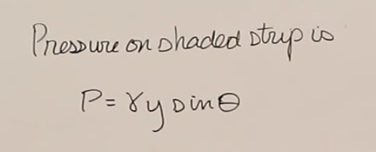 Pressure on shaded strip is
P = γy sinθ